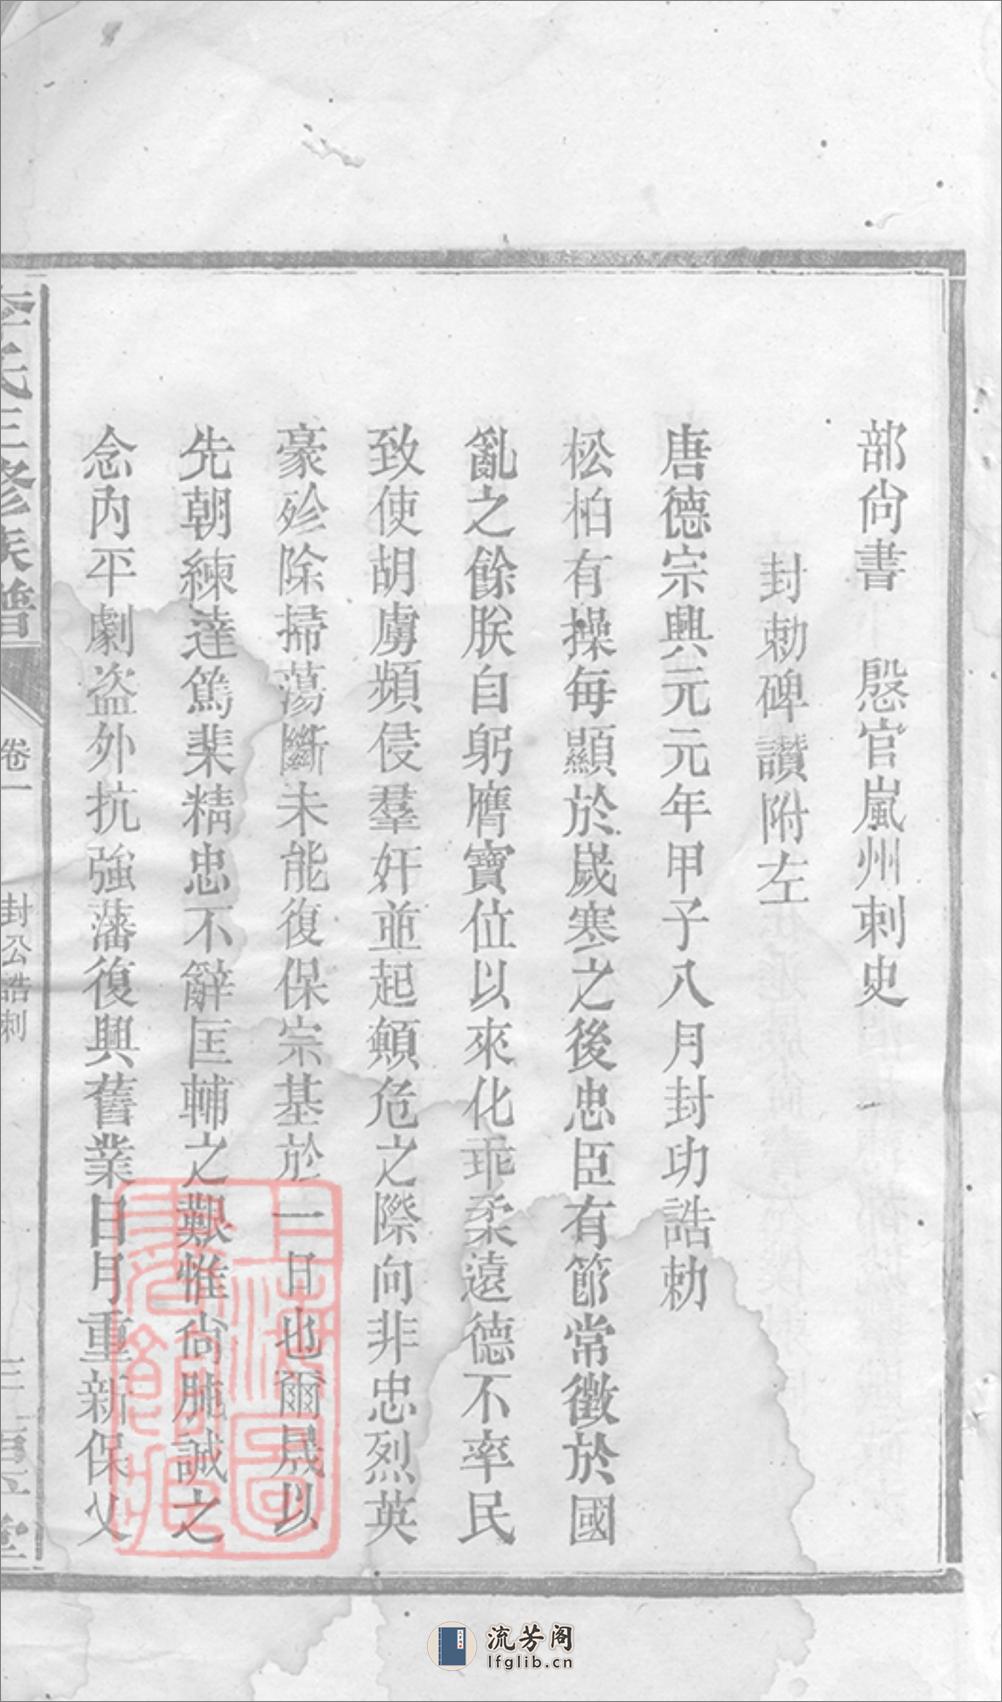 部尚書　慇官嵐州刺史
封勅碑讚附左
唐德宗興元元年甲子八月封功誥勅
松柏有操每顯於嵗寒之後忠臣有節常徵於國
亂之餘朕自躬膺寶位以來化乖柔遠德不率民
致使胡虜頻侵羣奸並起顛危之際向非忠烈英
豪殄除掃蕩斷未能復保宗基於一日也爾晟以
先朝練達篤棐精忠不辭匡輔之艱惟尚肫誠之
念內平劇盗外抗強藩復興舊業日月重新保乂
李氏三修族譜
卷一
封公誥刺
堂
上海圖書館藏
流芳阁
lfglib.cn